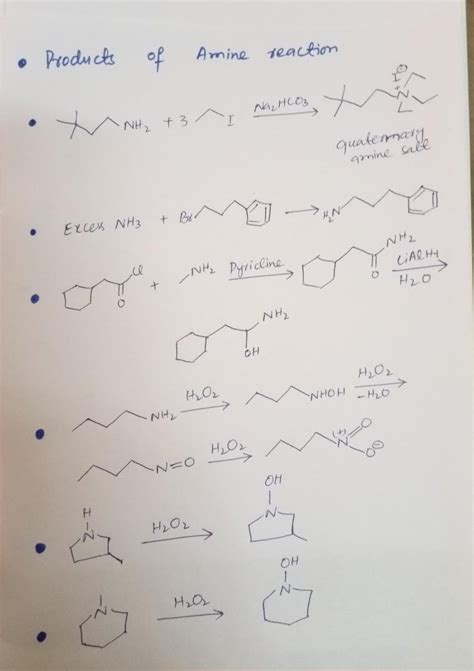 • Products of Amine reaction
• NH2 + 3 I Na2HCO3 I⊖ N+
quaternary
amine salt
• Excess NH3 + Br H2N
• Cl O + NH2 Pyridine NH2 O LiAlH4
H2O
NH2
OH
• NH2 H2O2 NHOH H2O2
-H2O
N=O H2O2 N(+) O O⊖
• H N H2O2 OH N
• N H2O2 OH N